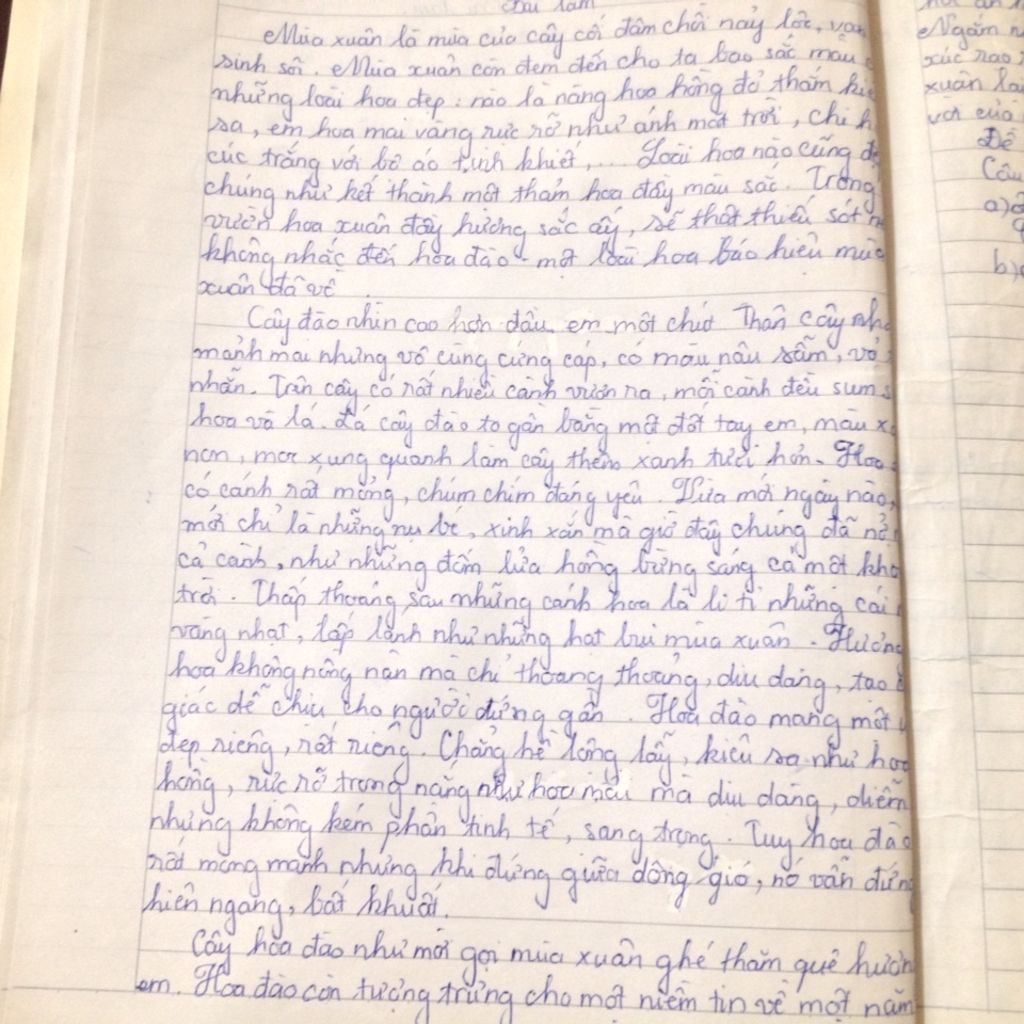 Bài làm
Mùa xuân là mùa của cây cối đâm chồi nảy lộc, vạn
sinh sôi. Mùa xuân còn đem đến cho ta bao sắc màu c
những loài hoa đẹp: nào là nàng hoa hồng đỏ thắm kiê
sa, em hoa mai vàng rực rỡ như ánh mặt trời, chị h
cúc trắng với bộ áo tinh khiết,... Loài hoa nào cũng đẹ
chúng như kết thành một thảm hoa đầy màu sắc. Trong
vườn hoa xuân đầy hương sắc ấy, sẽ thật thiếu sót n
không nhắc đến hoa đào - một loài hoa báo hiệu mùa
xuân đã về.
Cây đào nhìn cao hơn đầu em một chút. Thân cây nhỏ
mảnh mai nhưng vô cùng cứng cáp, có màu nâu sẫm, vỏ
nhẵn. Trên cây có rất nhiều cành vươn ra, mỗi cành đều sum s
hoa và lá. Lá cây đào to gần bằng một đốt tay em, màu x
non, mọc xung quanh làm cây thêm xanh tươi hơn. Hoa
có cánh rất mỏng, chúm chím đáng yêu. Vừa mới ngày nào,
mới chỉ là những nụ bé, xinh xắn mà giờ đây chúng đã nở
cả cành, như những đốm lửa hồng bừng sáng cả một kho
trời. Thấp thoáng sau những cánh hoa là li ti những cái
vàng nhạt, lấp lánh như những hạt bụi mùa xuân. Hương
hoa không nồng nàn mà chỉ thoang thoảng, dịu dàng, tạo
giác dễ chịu cho người đứng gần. Hoa đào mang một v
đẹp riêng, rất riêng. Chẳng hề lộng lẫy, kiêu sa như hoa
hồng, rực rỡ trong nắng như hoa mai mà dịu dàng, diễm
nhưng không kém phần tinh tế, sang trọng. Tuy hoa đào
rất mỏng manh nhưng khi đứng giữa dông gió, nó vẫn đứng
hiên ngang, bất khuất.
Cây hoa đào như mời gọi mùa xuân ghé thăm quê hươn
em. Hoa đào còn tượng trưng cho một niềm tin về một năm
Ngắm n
xúc rao
xuân lại
vời của
Đề
Câu
a)
b)